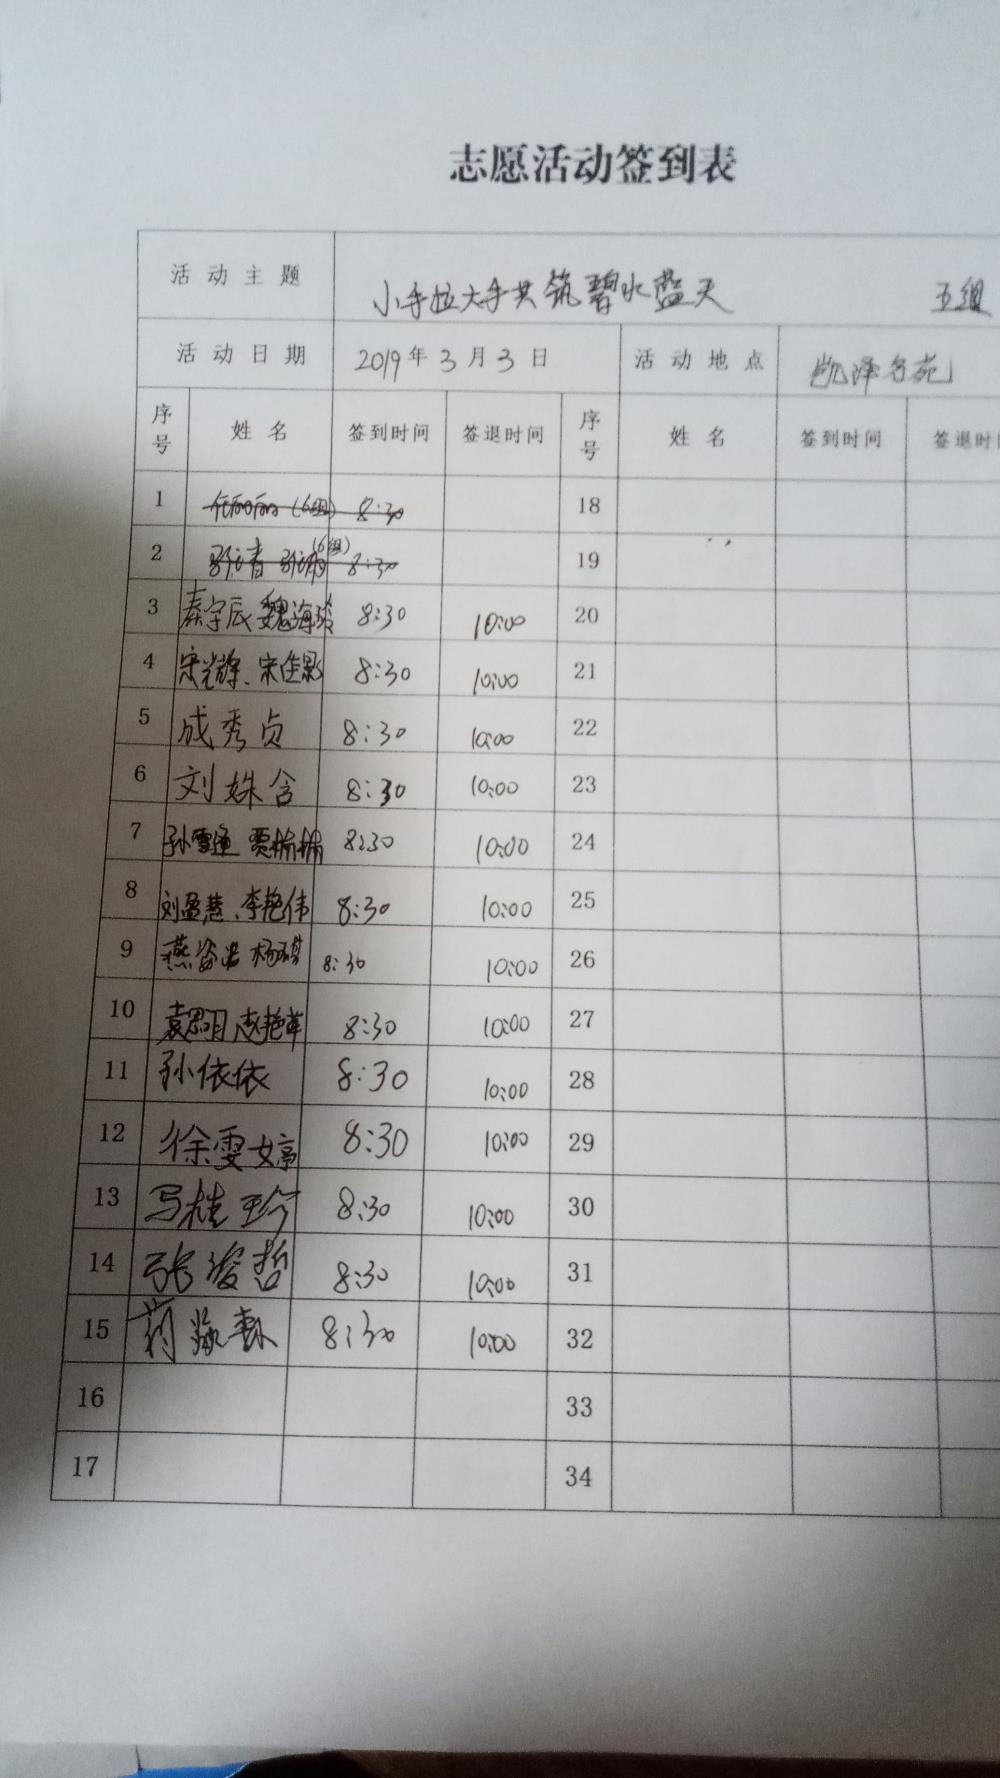 志愿活动签到表
活动主题 小手拉大手共筑碧水蓝天 五组
活动日期 2019年3月3日 活动地点 凯泽名苑
序号 姓名 签到时间 签退时间 序号 姓名 签到时间 签退时
1 (6组) 8:30 18
2 (6组) 8:30 19
3 秦宇辰 魏海玲 8:30 10:00 20
4 宋光辉、宋佳影 8:30 10:00 21
5 成秀贞 8:30 10:00 22
6 刘姝含 8:30 10:00 23
7 孙雪 贾楠楠 8:30 10:00 24
8 刘盈慧、李艳伟 8:30 10:00 25
9 燕姿 杨 8:30 10:00 26
10 袁 赵艳萍 8:30 10:00 27
11 孙依依 8:30 10:00 28
12 徐雯婷 8:30 10:00 29
13 马桂珍 8:30 10:00 30
14 张浚哲 8:30 10:00 31
15 8:30 10:00 32
16 33
17 34